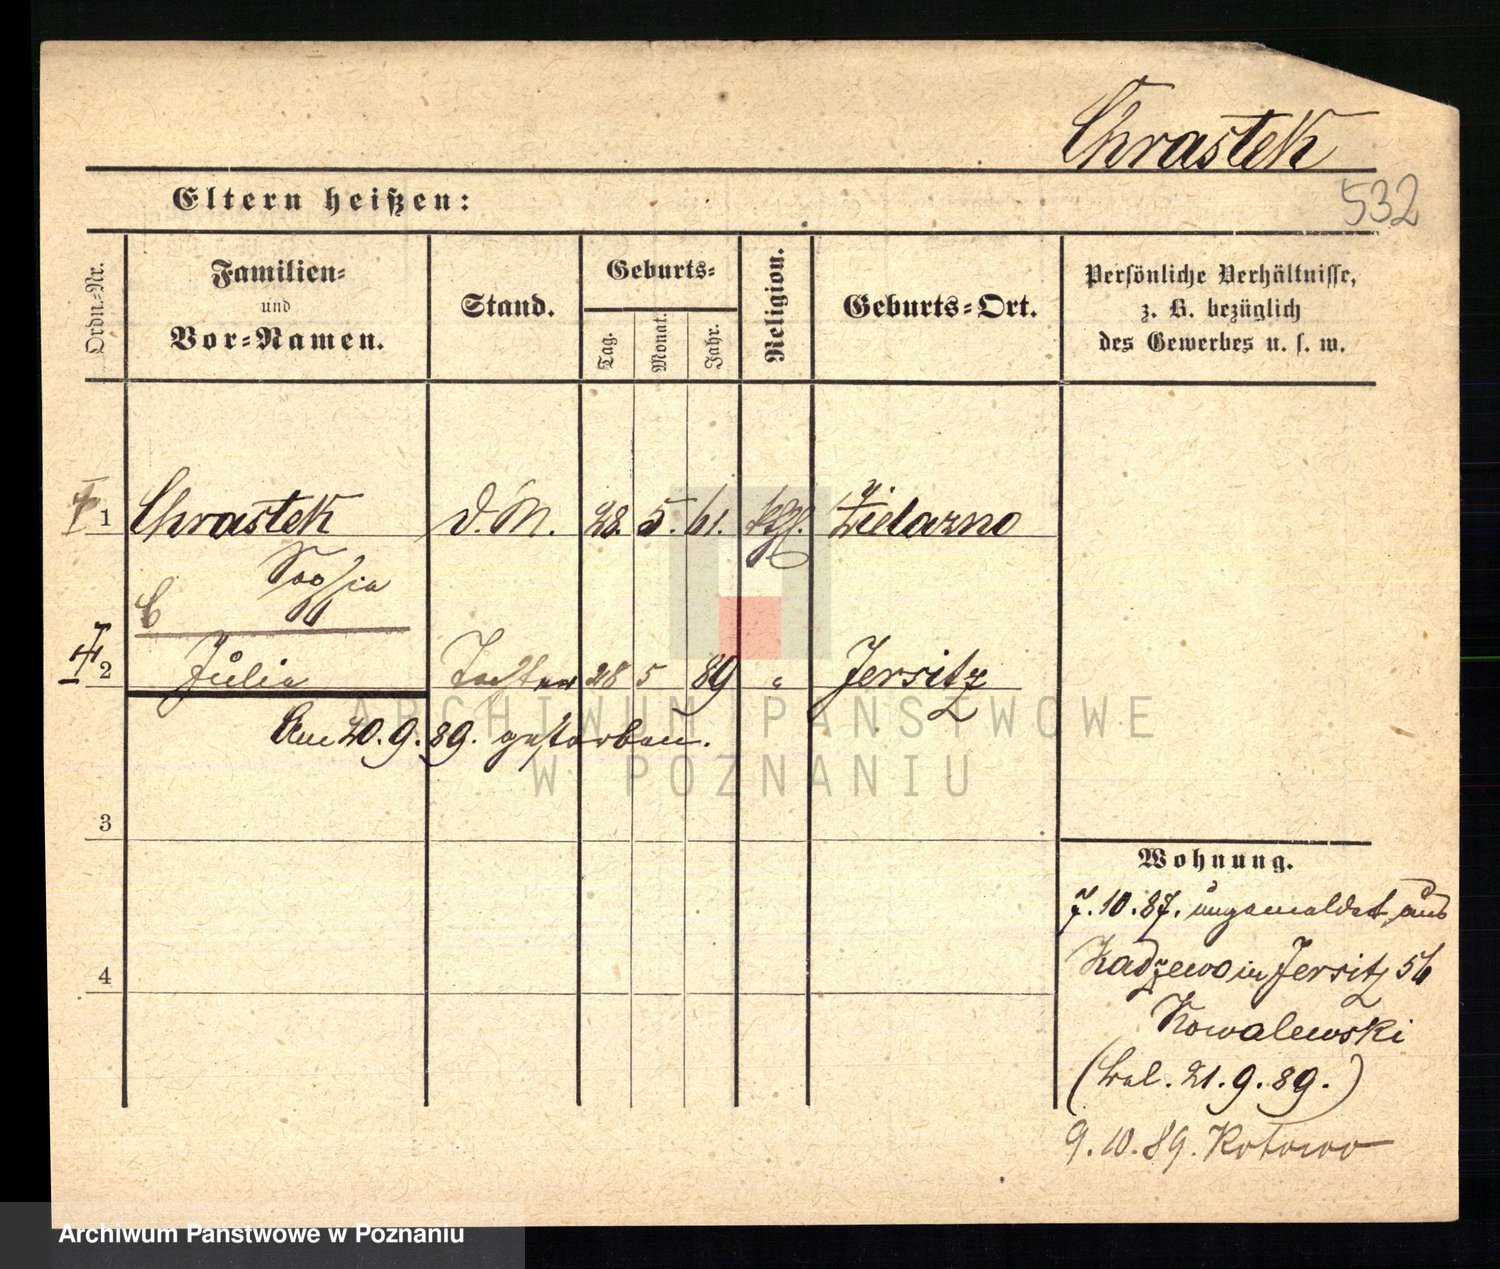 Chrastek
532
Eltern heißen:
Ordn.-Nr.
Familien-
und
Vor-Namen.
Stand.
Geburts-
Tag.
Monat.
Jahr.
Religion.
Geburts-Ort.
Persönliche Verhältnisse,
z. B. bezüglich
des Gewerbes u. s. w.
1 Chrastek D. M. 28. 5. 61. Zielazno
Sophia
2 Julie Tochter 28 5 89 " Jersitz
Am 20.9.89. gestorben.
3
4
Wohnung.
7.10.87. umgemeldet aus
Radzewo in Jersitz 56
Kowalewski
21.9.89.)
9.10.89. Kotowo
ARCHIWUM PAŃSTWOWE
W POZNANIU
Archiwum Państwowe w Poznaniu